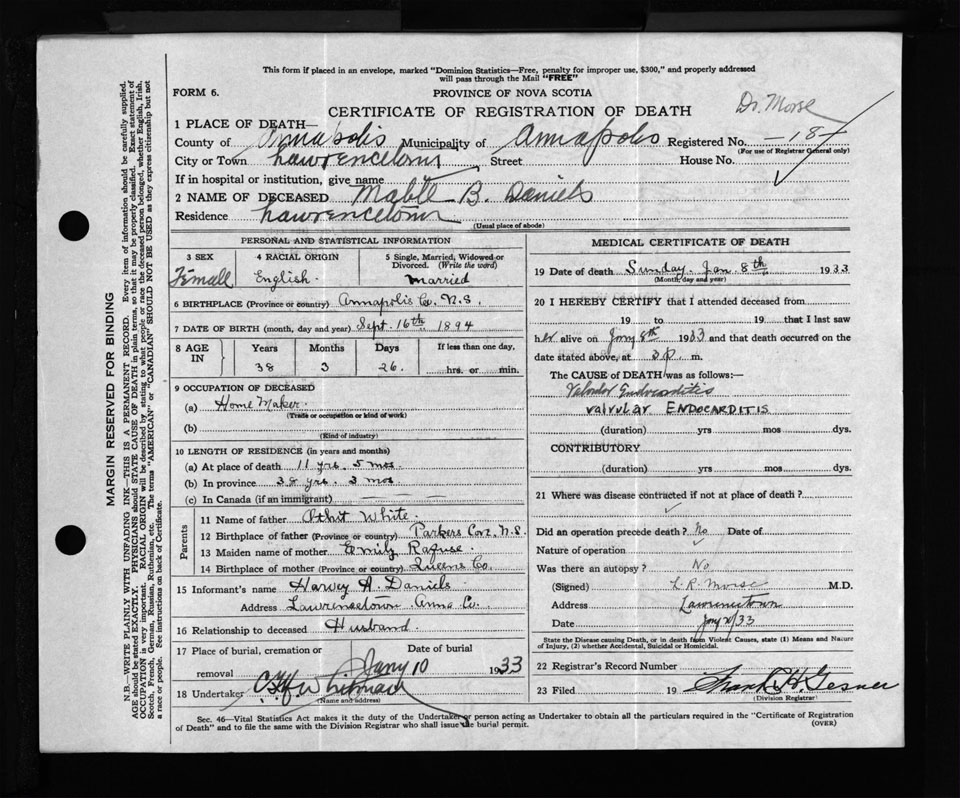 This form if placed in an envelope, marked "Dominion Statistics—Free, penalty for improper use, $300," and properly addressed
will pass through the Mail "FREE"
FORM 6.
PROVINCE OF NOVA SCOTIA
CERTIFICATE OF REGISTRATION OF DEATH
Dr. Morse
1 PLACE OF DEATH—
County of Annapolis Municipality of Annapolis Registered No.
(For use of Registrar General only)
City or Town Lawrencetown Street House No.
If in hospital or institution, give name
2 NAME OF DECEASED Mable B. Daniels
Residence Lawrencetown
(Usual place of abode)
PERSONAL AND STATISTICAL INFORMATION
3 SEX
Female
4 RACIAL ORIGIN
English
5 Single, Married, Widowed or
Divorced. (Write the word)
married
6 BIRTHPLACE (Province or country) Annapolis Co. N.S.
7 DATE OF BIRTH (month, day and year) Sept. 16th 1894
8 AGE IN Years Months Days If less than one day,
38 3 26 hrs. or min.
9 OCCUPATION OF DECEASED
(a) Home Maker
(Trade or occupation or kind of work)
(b)
(Kind of industry)
10 LENGTH OF RESIDENCE (in years and months)
(a) At place of death 11 yrs. 5 mos.
(b) In province 38 yrs. 3 mos
(c) In Canada (if an immigrant) — — —
Parents
11 Name of father White
12 Birthplace of father (Province or country) Parkers Cove N.S.
13 Maiden name of mother Emily Rafuse
14 Birthplace of mother (Province or country) Queens Co.
15 Informant's name Harvey A. Daniels
Address Lawrencetown Anna Co.
16 Relationship to deceased Husband
17 Place of burial, cremation or Date of burial
removal Jany 10 1933
18 Undertaker Whitman
(Name and address)
MEDICAL CERTIFICATE OF DEATH
19 Date of death Sunday. Jan. 8th 1933
(Month, day and year)
20 I HEREBY CERTIFY that I attended deceased from
19 to 19 that I last saw
her alive on Jany 8th 1933 and that death occurred on the
date stated above, at m.
The CAUSE of DEATH was as follows:—
Valvular Endocarditis
valvular ENDOCARDITIS
(duration) yrs mos dys.
CONTRIBUTORY
(duration) yrs mos dys.
21 Where was disease contracted if not at place of death?
Did an operation precede death? No Date of
Nature of operation
Was there an autopsy? No
(Signed) L. R. Morse M.D.
Address Lawrencetown
Date
State the Disease causing Death, or in death from Violent Causes, state (1) Means and Nature
of Injury, (2) whether Accidental, Suicidal or Homicidal.
22 Registrar's Record Number
23 Filed 19 Frank H. Gesner
(Division Registrar)
Sec. 46—Vital Statistics Act makes it the duty of the Undertaker or person acting as Undertaker to obtain all the particulars required in the "Certificate of Registration
of Death" and to file the same with the Division Registrar who shall issue the burial permit. (OVER)
MARGIN RESERVED FOR BINDING
N.B.—WRITE PLAINLY WITH UNFADING INK—THIS IS A PERMANENT RECORD. Every item of information should be carefully supplied.
AGE should be stated EXACTLY. PHYSICIANS should STATE CAUSE OF DEATH in plain terms, so that it may be properly classified. Exact statement of
OCCUPATION is very important. RACIAL ORIGIN will be described by stating to what people or race the deceased person belonged, whether English, Irish,
Scotch, French, German, Russian, Ruthenian, etc. The terms "AMERICAN" or "CANADIAN" SHOULD NOT BE USED as they express citizenship but not
a race or people. See instructions on back of Certificate.